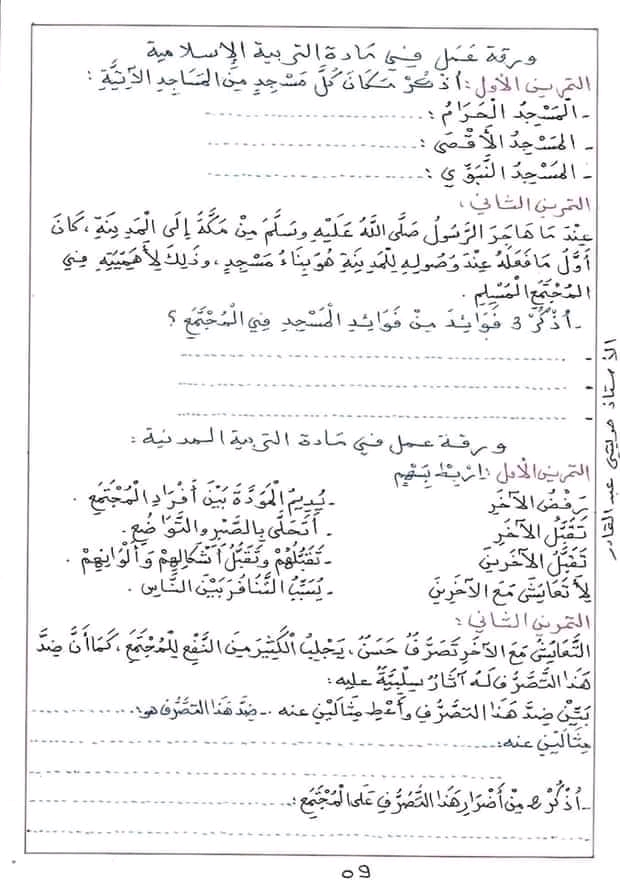 ورقة عَمَل فِي مَادة التربية الإسلامية
التمرين الأول: أُذْكُرْ مَكَانَ كُلِّ مَسْجِدٍ مِنَ المَسَاجِدِ الآتِيَّةِ :
- الْمَسْجِدُ الْحَرَامُ : ....................
- المَسْجِدُ الأَقْصَى : ....................
- المَسْجِدُ النَّبَوِّي : ....................
التمرين الثاني :
عِنْدَ مَا هَاجَرَ الرَّسُولُ صَلَّى اللَّهُ عَلَيْهِ وَسَلَّمَ مِنْ مَكَّةَ إِلَى الْمَدِينَةِ ، كَانَ
أَوَّلُ مَا فَعَلَهُ عِنْدَ وُصُولِهِ لِلْمَدِينَةِ هُوَ بِنَاءُ مَسْجِدٍ ، وَذَلِكَ لِأَهَمِّيَّتِهِ فِي
المُجْتَمَعِ الْمُسْلِمِ .
- أُذْكُرْ 3 فَوَائِدَ مِنْ فَوَائِدِ الْمَسْجِدِ فِي الْمُجْتَمَعِ ؟
- ....................
- ....................
- ....................
ورقة عمل في مَادة التربية المدنية :
التمرين الأول : اِرْبِطْ بِسَهْمٍ
رَفْضُ الآخَرِ - يُدِيمُ الْمَوَدَّةَ بَيْنَ أَفْرَادِ الْمُجْتَمَعِ .
تَقَبُّلُ الآخَرِ - أَتَحَلَّى بِالصَّبْرِ والتَّوَاضُعِ .
تَقَبُّلُ الآخَرِينَ - تَقَبُّلُهُمْ وَتَقَبُّلُ أَشْكَالِهِمْ وَأَلْوَانِهِمْ .
لِأَتَعَايَشَ مَعَ الآخَرِينَ - يُسَبِّبُ التَّنَافُرَ بَيْنَ النَّاسِ .
التمرين الثاني :
التَّعَايُشُ مَعَ الآخَرِ تَصَرُّفٌ حَسَنٌ ، يَجْلِبُ الْكَثِيرَ مِنَ النَّفْعِ لِلْمُجْتَمَعِ ، كَمَا أَنَّ ضِدَّ
هَذَا التَّصَرُّفِ لَهُ آثَارٌ سِلْبِيَّةٌ عليه :
بَيِّنْ ضِدَّ هَذَا التَّصَرُّفِ وَأَعْطِ مِثَالَيْنِ عنه . - ضِدُّ هَذَا التَّصَرُّفِ هو: ..........
مِثَالَيْنِ عنه: ....................
....................
- أُذْكُرْ 2 مِنْ أَضْرَارِ هَذَا التَّصَرُّفِ عَلَى الْمُجْتَمَعِ : ..........
....................
09